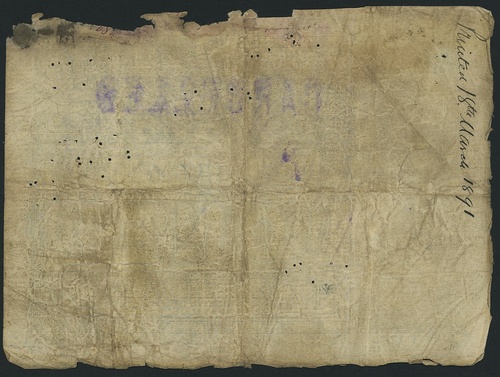 Printed 18th March 1891
CANCELLED